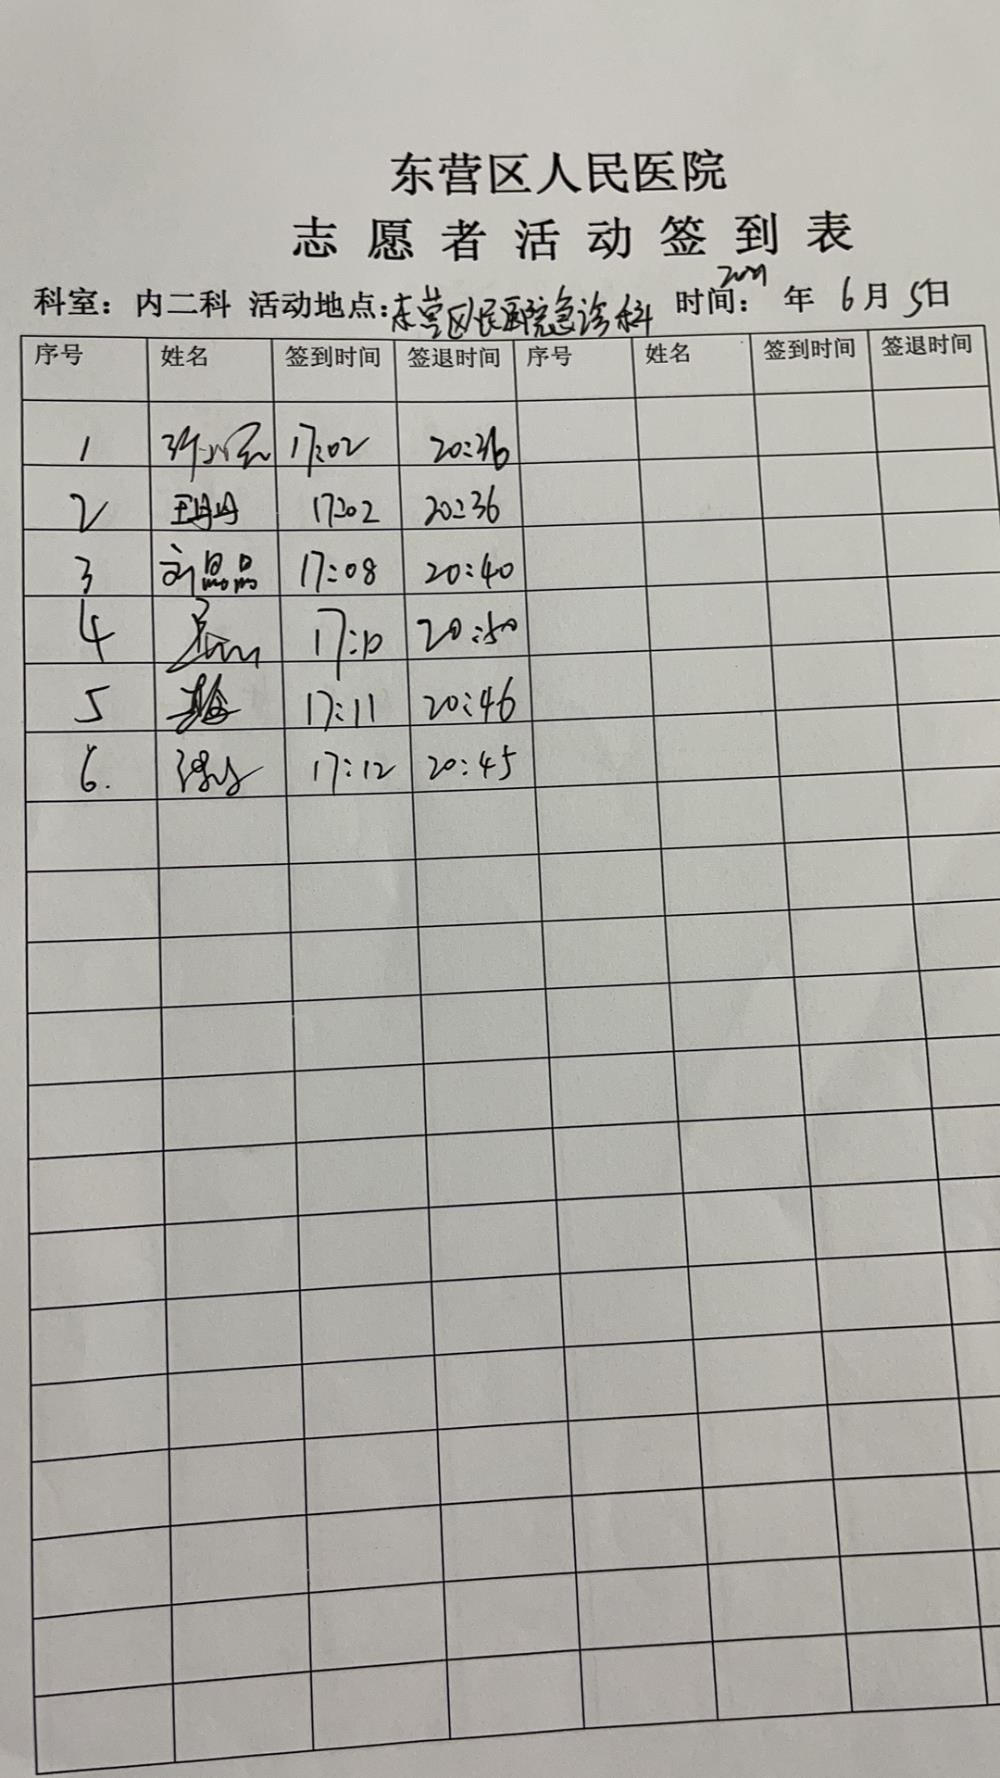 东营区人民医院
志愿者活动签到表
科室：内二科 活动地点：东营区人民医院急诊科 时间： 2021 年 6月 5日
序号 姓名 签到时间 签退时间 序号 姓名 签到时间 签退时间
1 17:02 20:36
2 王丹丹 17:02 20:36
3 刘晶晶 17:08 20:40
4 17:10 20:50
5 17:11 20:46
6. 17:12 20:45